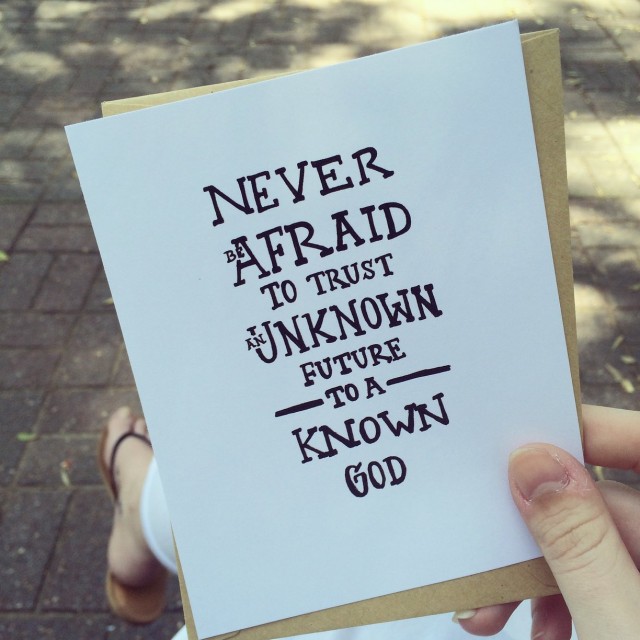 NEVER
BE AFRAID
TO TRUST
AN UNKNOWN
FUTURE
TO A
KNOWN
GOD